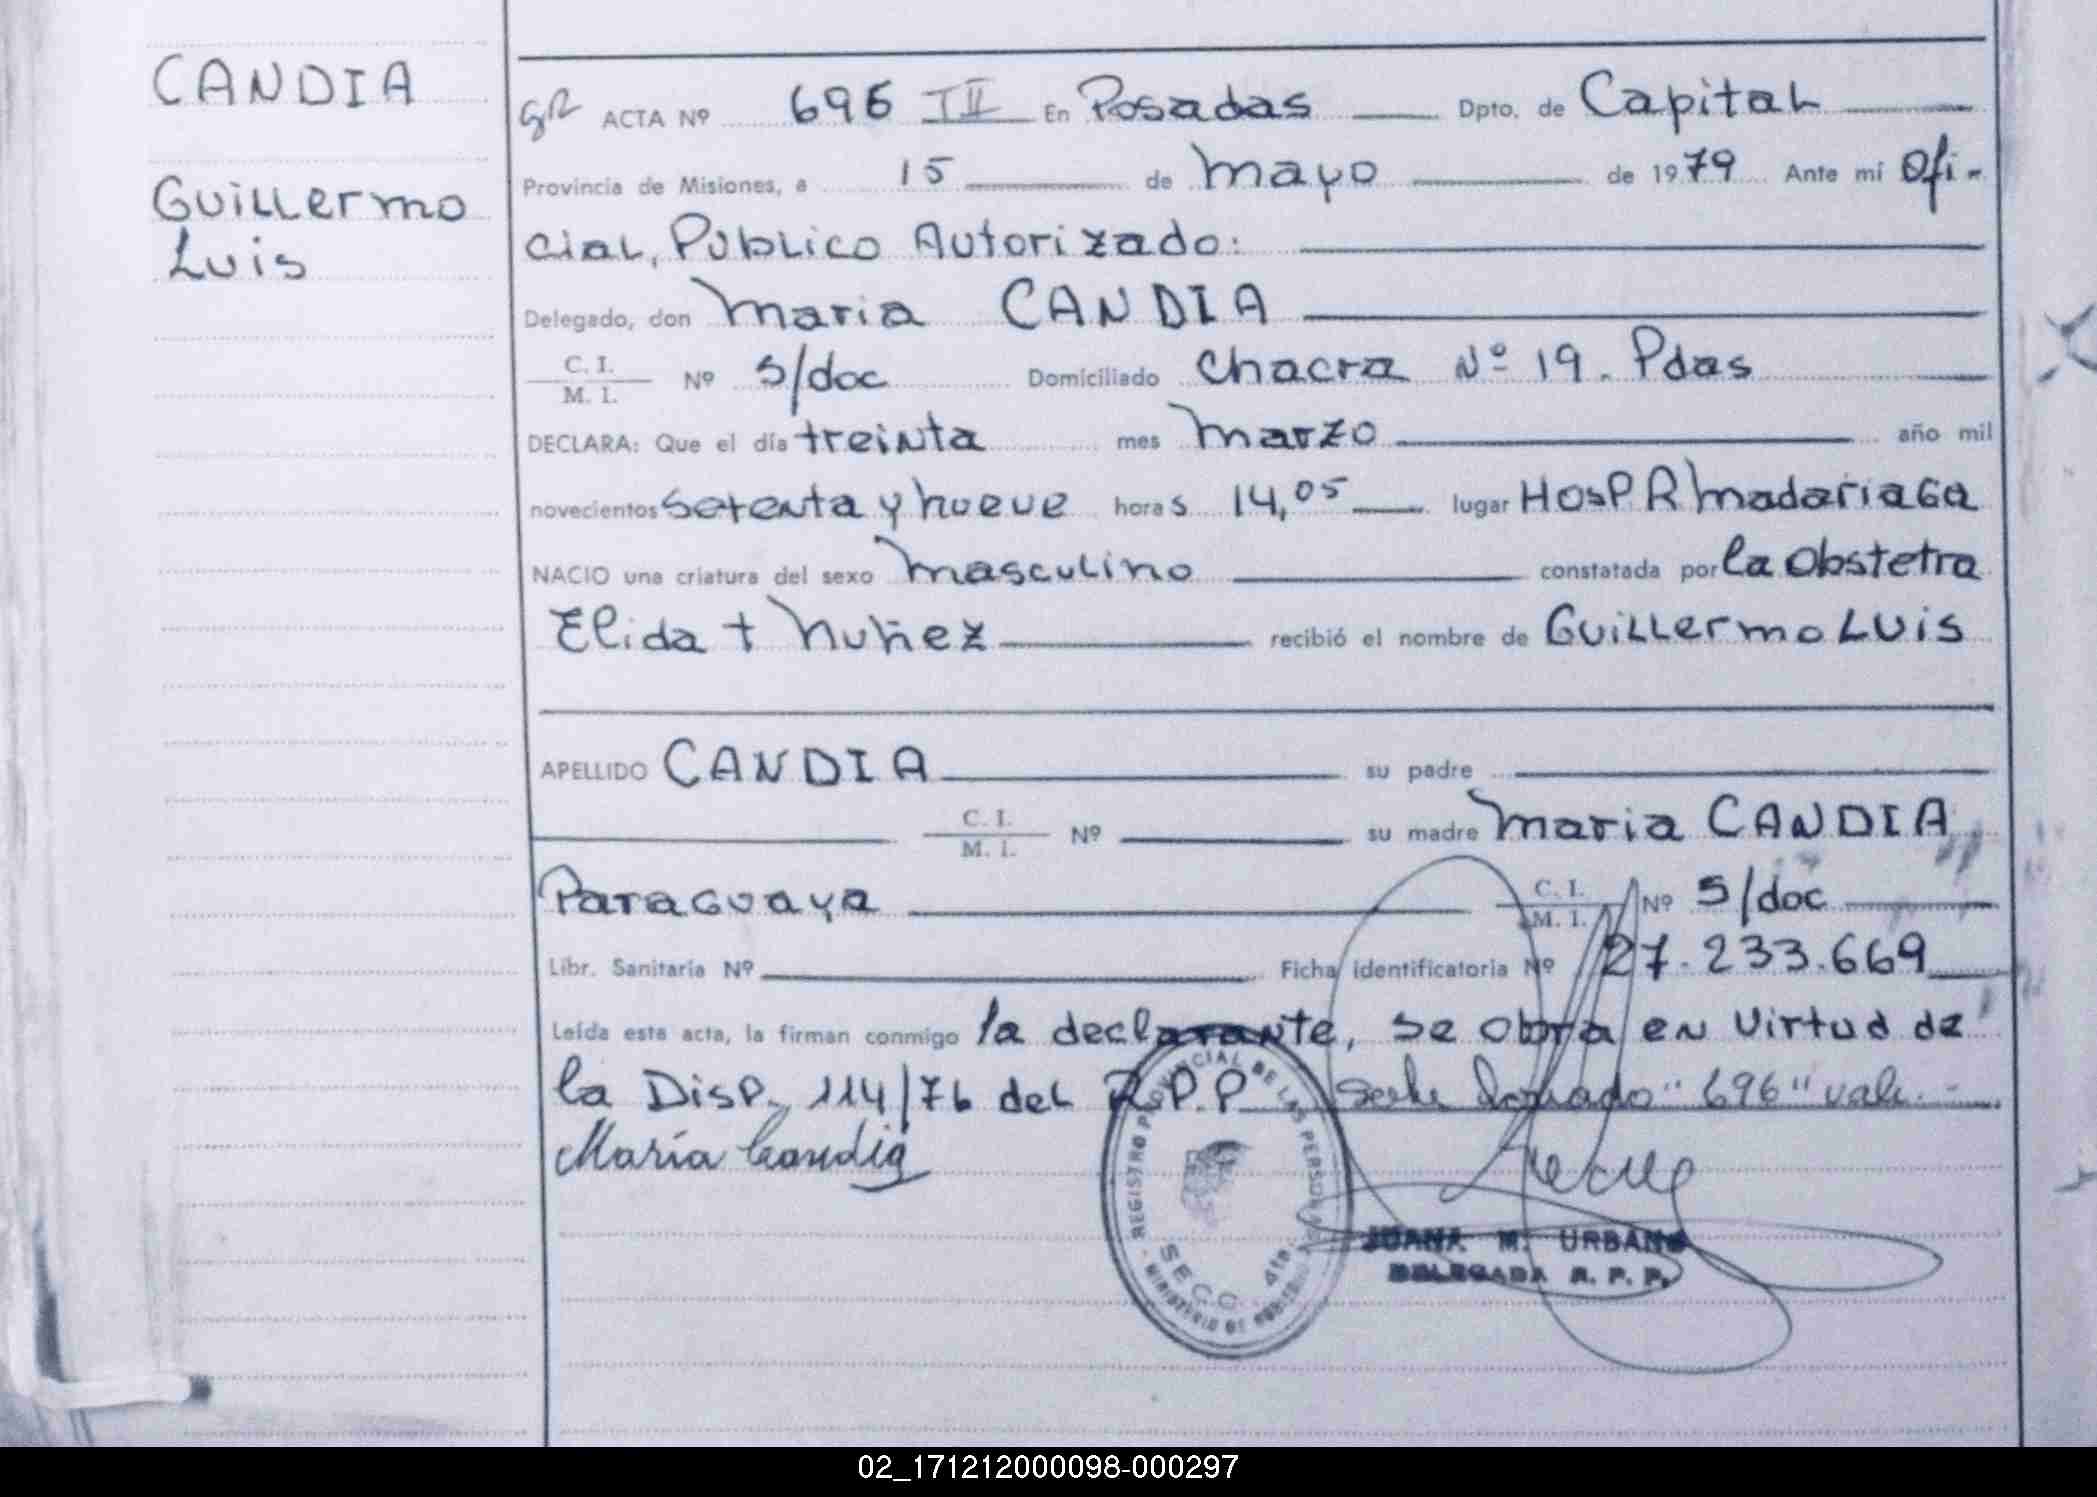 CANDIA
Guillermo
Luis
ACTA Nº 696 III En Posadas Dpto. de Capital
Provincia de Misiones, a 15 de Mayo de 1979 Ante mí Ofi-
cial, Publico Autorizado:
Delegado, don Maria CANDIA
C. I.
M. I. Nº S/doc Domiciliado Chacra Nº 19. Pdas
DECLARA: Que el día treinta mes Marzo año mil
novecientos setenta y nueve horas 14,05 lugar HosP R Madariaga
NACIO una criatura del sexo Masculino constatada por la Obstetra
Elida T Nuñez recibió el nombre de Guillermo Luis
APELLIDO CANDIA su padre
C. I.
M. I. Nº su madre Maria CANDIA
Paraguaya C. I.
M. I. Nº S/doc
Libr. Sanitaria Nº Ficha identificatoria Nº 27.233.669
Leída esta acta, la firman conmigo la declarante, se obra en virtud de
la Disp. 114/76 del R.P.P "696" vale.-
María Candia
REGISTRO PROVINCIAL DE LAS PERSONAS
SECC. 4ta.
MINISTERIO DE GOBIERNO
JUANA M. URBANO
DELEGADA R. P. P.
02_171212000098-000297